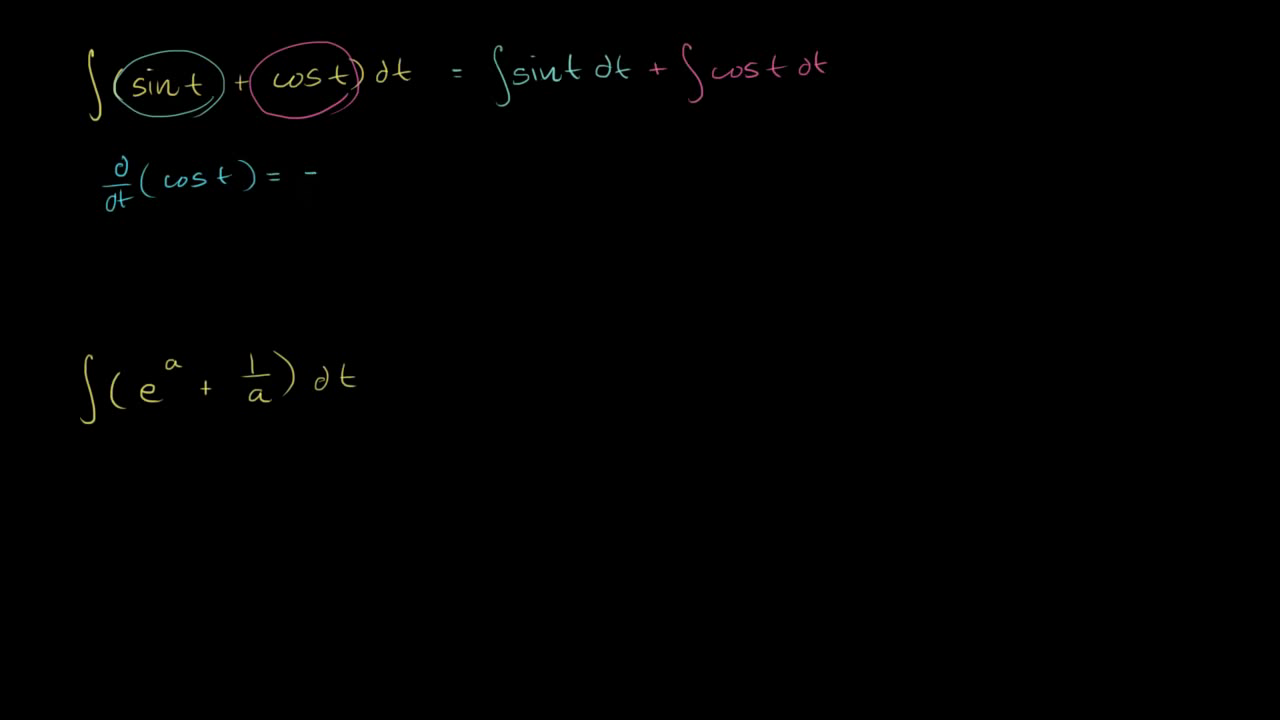 ∫(sin t + cos t) dt = ∫sin t dt + ∫cos t dt
d/dt (cos t) = -
∫(e^a + 1/a) dt